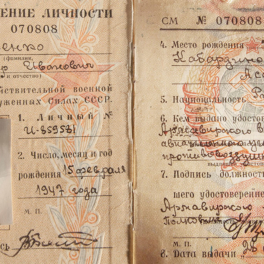 ЕНИЕ ЛИЧНОСТИ
070808
енко
(фамилия,
Иванович
и отчество)
йствительной военной
уженных Силах СССР.
1. Личный №
И-659581
2. Число, месяц и год
рождения 15 февраля
1947 года
М. П.
СМ № 070808
4. Место рождения
Кабардино
5. Национальность
6. Кем выдано удостов
Армавирского в
авиационного
противовоздушн
7. Подпись должност
шего удостоверение
Армавирского
Полковник
М. П.
8. Дата выдачи